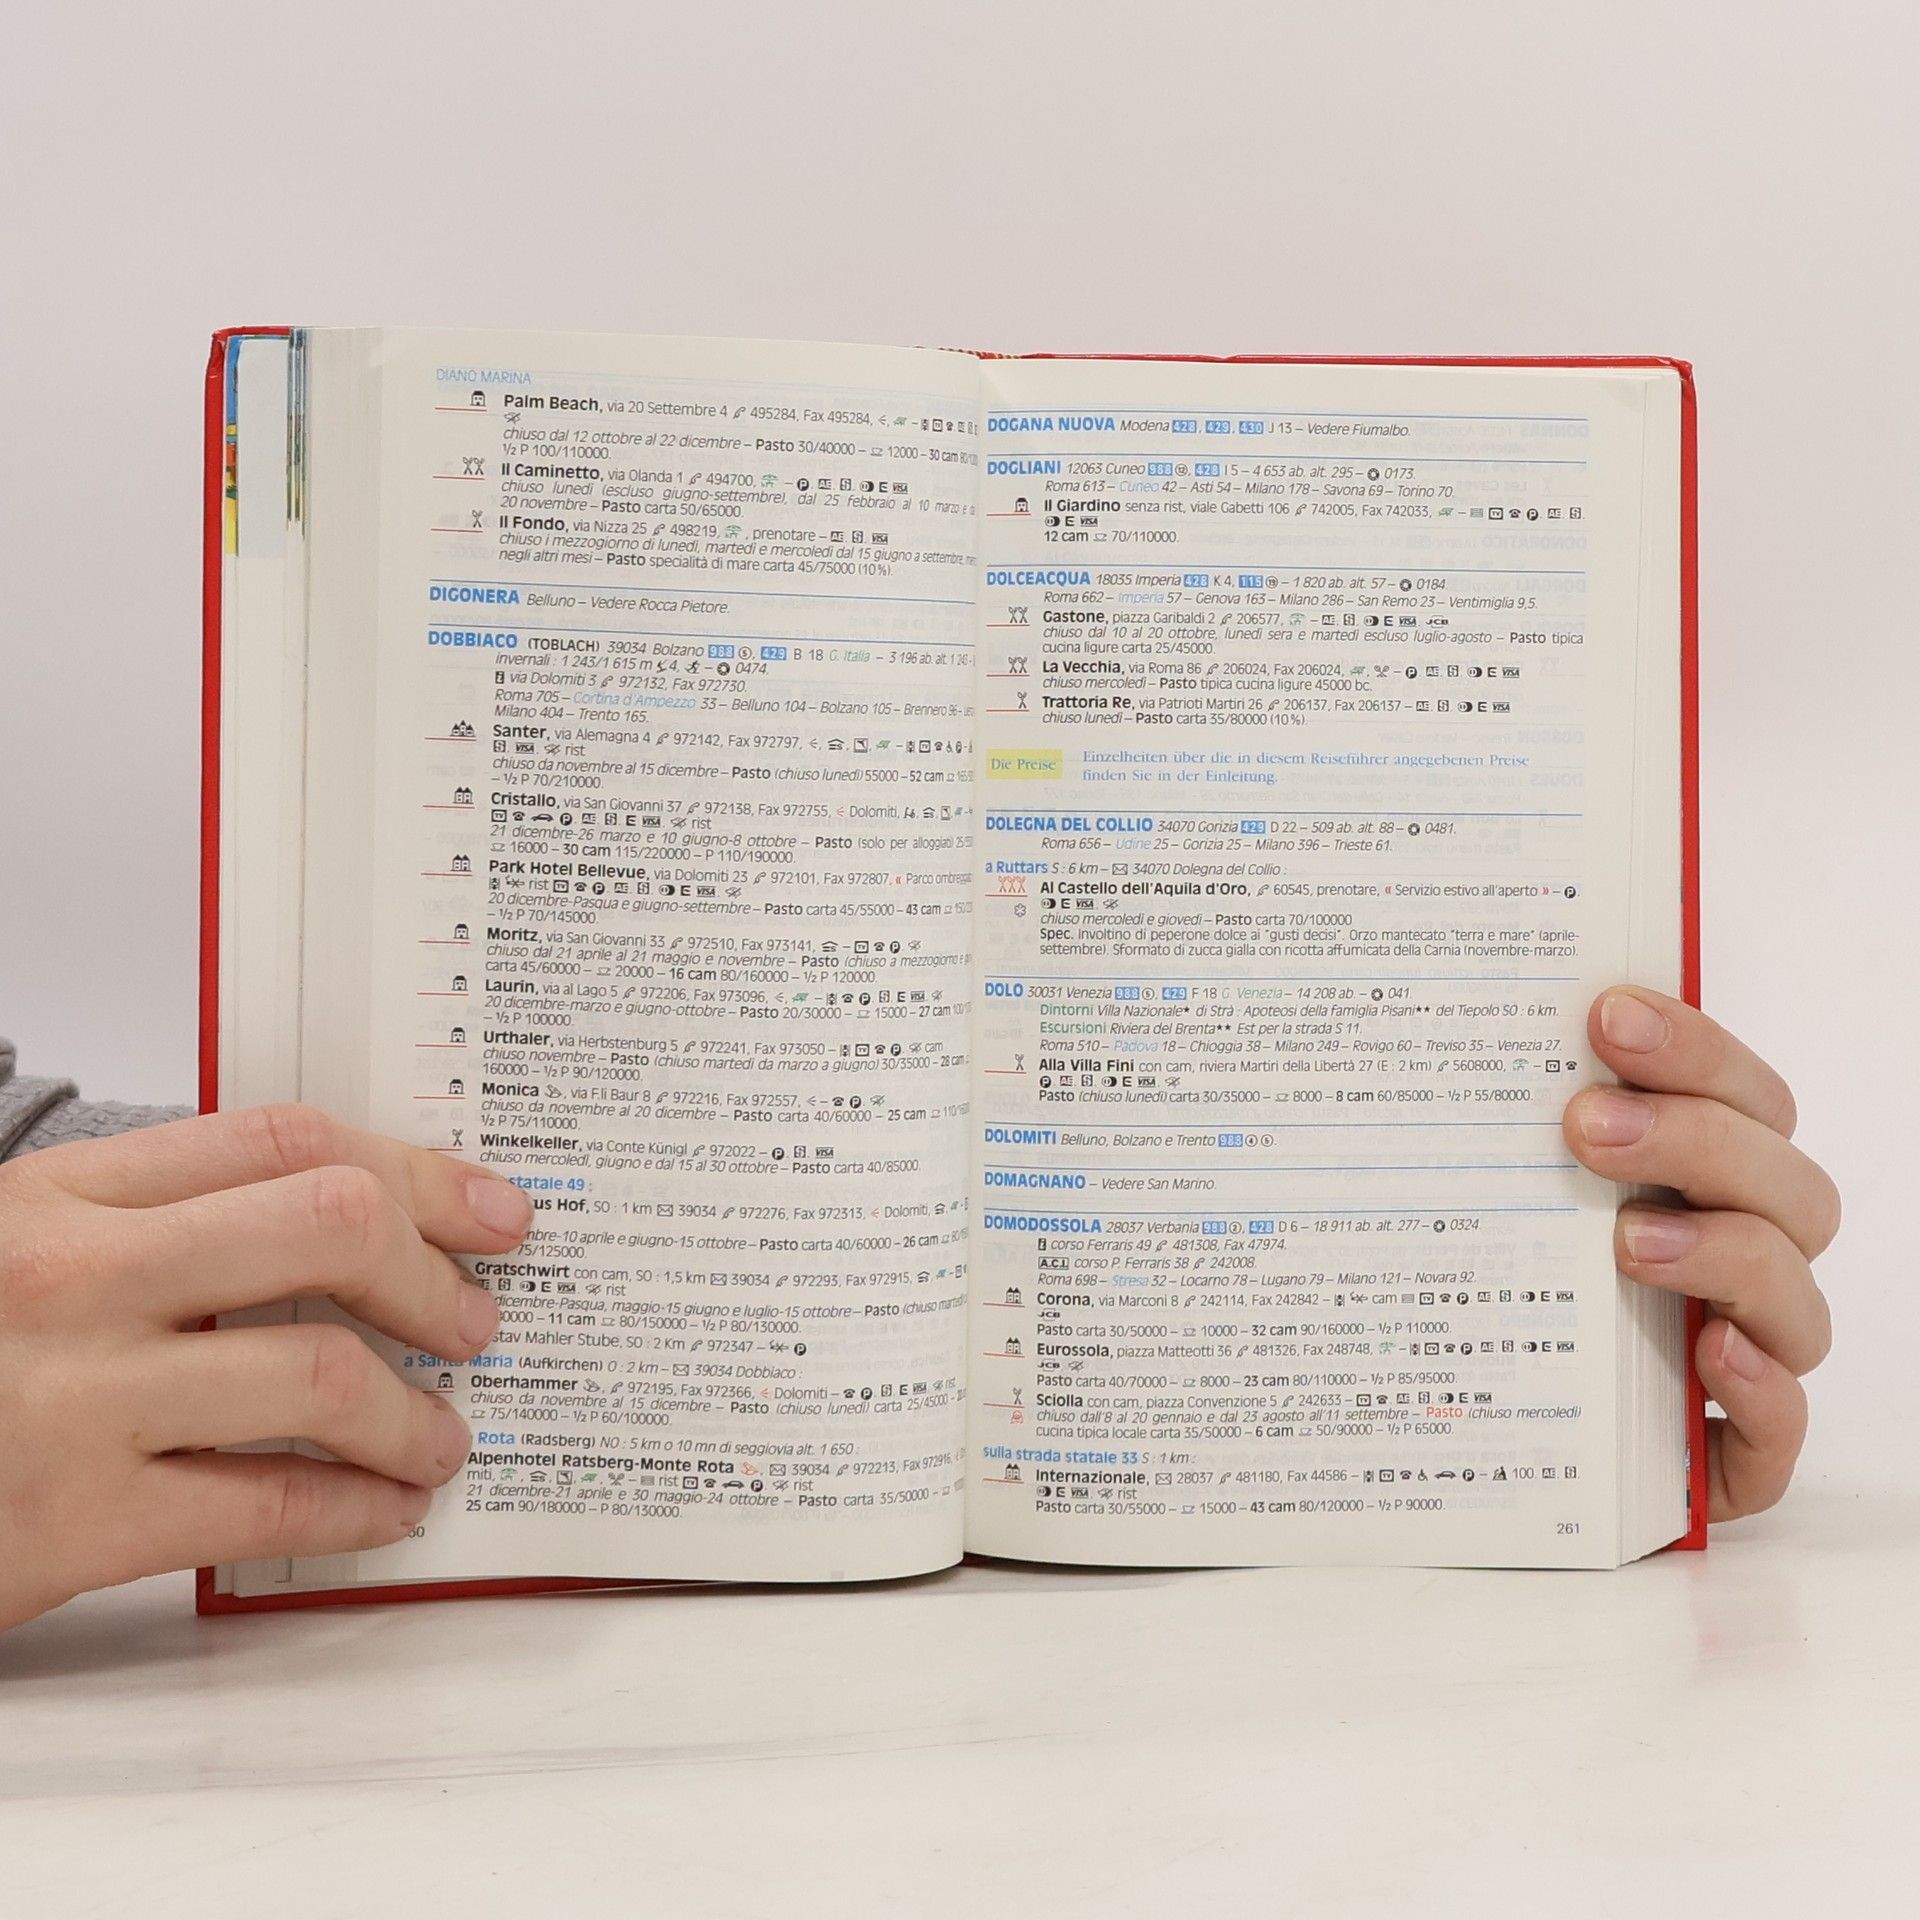 DIANO MARINA
Palm Beach, via 20 Settembre 4 495284, Fax 495284,
chiuso dal 12 ottobre al 22 dicembre – Pasto 30/40000 – 12000 – 30 cam
½ P 100/110000.
Il Caminetto, via Olanda 1 494700, – P. AE. E VISA
chiuso lunedì (escluso giugno-settembre), dal 25 febbraio al 10 marzo e
20 novembre – Pasto carta 50/65000.
Il Fondo, via Nizza 25 498219, , prenotare – AE. VISA
chiuso i mezzogiorno di lunedì, martedì e mercoledì dal 15 giugno a settembre,
negli altri mesi – Pasto specialità di mare carta 45/75000 (10%).
DIGONERA Belluno – Vedere Rocca Pietore.
DOBBIACO (TOBLACH) 39034 Bolzano 988 5, 429 B 18 G. Italia – 3 196 ab. alt. 1 243 –
invernali : 1 243/1 615 m 4, – 0474.
via Dolomiti 3 972132, Fax 972730.
Roma 705 – Cortina d'Ampezzo 33 – Belluno 104 – Bolzano 105 – Brennero 96 –
Milano 404 – Trento 165.
Santer, via Alemagna 4 972142, Fax 972797,
VISA. rist
chiuso da novembre al 15 dicembre – Pasto (chiuso lunedì) 55000 – 52 cam
– ½ P 70/210000.
Cristallo, via San Giovanni 37 972138, Fax 972755, < Dolomiti,
TV P. AE. E VISA. rist
21 dicembre-26 marzo e 10 giugno-8 ottobre – Pasto (solo per alloggiati)
16000 – 30 cam 115/220000 – P 110/190000.
Park Hotel Bellevue, via Dolomiti 23 972101, Fax 972807, « Parco
rist TV P. AE. E VISA.
20 dicembre-Pasqua e giugno-settembre – Pasto carta 45/55000 – 43 cam
– ½ P 70/145000.
Moritz, via San Giovanni 33 972510, Fax 973141, – TV P
chiuso dal 21 aprile al 21 maggio e novembre – Pasto (chiuso a mezzogiorno e
carta 45/60000 – 20000 – 16 cam 80/160000 – ½ P 120000.
Laurin, via al Lago 5 972206, Fax 973096, <, – P. E VISA
20 dicembre-marzo e giugno-ottobre – Pasto 20/30000 – 15000 – 27 cam
– ½ P 100000.
Urthaler, via Herbstenburg 5 972241, Fax 973050 – TV P. cam
chiuso novembre – Pasto (chiuso martedì da marzo a giugno) 30/35000 – 28 cam
160000 – ½ P 90/120000.
Monica , via F.lli Baur 8 972216, Fax 972557, < – P.
chiuso da novembre al 20 dicembre – Pasto carta 40/60000 – 25 cam
½ P 75/110000.
Winkelkeller, via Conte Künigl 972022 – P. VISA
chiuso mercoledì, giugno e dal 15 al 30 ottobre – Pasto carta 40/85000.
statale 49 :
us Hof, SO : 1 km 39034 972276, Fax 972313, < Dolomiti,
mbre-10 aprile e giugno-15 ottobre – Pasto carta 40/60000 – 26 cam
75/125000.
Gratschwirt con cam, SO : 1,5 km 39034 972293, Fax 972915,
E VISA. rist
dicembre-Pasqua, maggio-15 giugno e luglio-15 ottobre – Pasto (chiuso martedì)
0000 – 11 cam 80/150000 – ½ P 80/130000.
stav Mahler Stube, SO : 2 Km 972347 – P
a Santa Maria (Aufkirchen) O : 2 km – 39034 Dobbiaco :
Oberhammer , 972195, Fax 972366, < Dolomiti – P. E VISA rist
chiuso da novembre al 15 dicembre – Pasto (chiuso lunedì) carta 25/45000 –
75/140000 – ½ P 60/100000.
Rota (Radsberg) NO : 5 km o 10 mn di seggiovia alt. 1 650 :
Alpenhotel Ratsberg-Monte Rota , 39034 972213, Fax 972916, <
miti, , – rist TV P. rist
21 dicembre-21 aprile e 30 maggio-24 ottobre – Pasto carta 35/50000 –
25 cam 90/180000 – P 80/130000.
60
DOGANA NUOVA Modena 428, 429, 430 J 13 – Vedere Fiumalbo.
DOGLIANI 12063 Cuneo 988 12, 428 I 5 – 4 653 ab. alt. 295 – 0173.
Roma 613 – Cuneo 42 – Asti 54 – Milano 178 – Savona 69 – Torino 70.
Il Giardino senza rist, viale Gabetti 106 742005, Fax 742033, – TV P. AE.
E VISA
12 cam 70/110000.
DOLCEACQUA 18035 Imperia 428 K 4, 115 19 – 1 820 ab. alt. 57 – 0184.
Roma 662 – Imperia 57 – Genova 163 – Milano 286 – San Remo 23 – Ventimiglia 9,5.
Gastone, piazza Garibaldi 2 206577, – AE. E VISA. JCB
chiuso dal 10 al 20 ottobre, lunedì sera e martedì escluso luglio-agosto – Pasto tipica
cucina ligure carta 25/45000.
La Vecchia, via Roma 86 206024, Fax 206024, , – P. AE. E VISA
chiuso mercoledì – Pasto tipica cucina ligure 45000 bc.
Trattoria Re, via Patrioti Martiri 26 206137, Fax 206137 – AE. E VISA
chiuso lunedì – Pasto carta 35/80000 (10%).
Die Preise Einzelheiten über die in diesem Reiseführer angegebenen Preise
finden Sie in der Einleitung.
DOLEGNA DEL COLLIO 34070 Gorizia 429 D 22 – 509 ab. alt. 88 – 0481.
Roma 656 – Udine 25 – Gorizia 25 – Milano 396 – Trieste 61.
a Ruttars S : 6 km – 34070 Dolegna del Collio :
Al Castello dell'Aquila d'Oro, 60545, prenotare, « Servizio estivo all'aperto » – P.
E VISA.
chiuso mercoledì e giovedì – Pasto carta 70/100000
Spec. Involtino di peperone dolce ai "gusti decisi". Orzo mantecato "terra e mare" (aprile-
settembre). Sformato di zucca gialla con ricotta affumicata della Carnia (novembre-marzo).
DOLO 30031 Venezia 988 5, 429 F 18 G. Venezia – 14 208 ab. – 041.
Dintorni Villa Nazionale★ di Strà : Apoteosi della Famiglia Pisani★★ del Tiepolo SO : 6 km.
Escursioni Riviera del Brenta★★ Est per la strada S 11.
Roma 510 – Padova 18 – Chioggia 38 – Milano 249 – Rovigo 60 – Treviso 35 – Venezia 27.
Alla Villa Fini con cam, riviera Martiri della Libertà 27 (E : 2 km) 5608000, – TV
P. AE. E VISA.
Pasto (chiuso lunedì) carta 30/35000 – 8000 – 8 cam 60/85000 – ½ P 55/80000.
DOLOMITI Belluno, Bolzano e Trento 988 4 5.
DOMAGNANO – Vedere San Marino.
DOMODOSSOLA 28037 Verbania 988 2, 428 D 6 – 18 911 ab. alt. 277 – 0324.
corso Ferraris 49 481308, Fax 47974.
A.C.I. corso P. Ferraris 38 242008.
Roma 698 – Stresa 32 – Locarno 78 – Lugano 79 – Milano 121 – Novara 92.
Corona, via Marconi 8 242114, Fax 242842 – cam TV P. AE. E VISA.
JCB
Pasto carta 30/50000 – 10000 – 32 cam 90/160000 – ½ P 110000.
Eurossola, piazza Matteotti 36 481326, Fax 248748, – TV P. AE. E VISA.
JCB
Pasto carta 40/70000 – 8000 – 23 cam 80/110000 – ½ P 85/95000.
Sciolla con cam, piazza Convenzione 5 242633 – TV AE. E VISA
chiuso dall'8 al 20 gennaio e dal 23 agosto all'11 settembre – Pasto (chiuso mercoledì)
cucina tipica locale carta 35/50000 – 6 cam 50/90000 – ½ P 65000.
sulla strada statale 33 S : 1 km :
Internazionale, 28037 481180, Fax 44586 – TV P – 100. AE.
E VISA. rist
Pasto carta 30/55000 – 15000 – 43 cam 80/120000 – ½ P 90000.
261